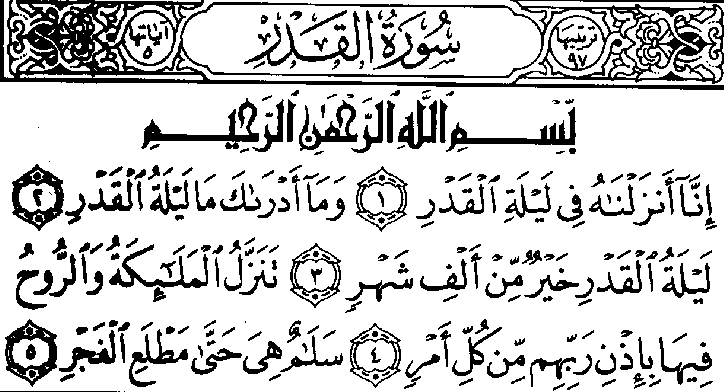 ترتيبها ٩٧ سُورَةُ الْقَدْرِ آياتها ٥
بِّسْمِ اللَّهِ الرَّحْمَٰنِ الرَّحِيمِ
إِنَّآ أَنزَلْنَٰهُ فِى لَيْلَةِ ٱلْقَدْرِ ١ وَمَآ أَدْرَىٰكَ مَا لَيْلَةُ ٱلْقَدْرِ ٢
لَيْلَةُ ٱلْقَدْرِ خَيْرٌ مِّنْ أَلْفِ شَهْرٍ ٣ تَنَزَّلُ ٱلْمَلَٰٓئِكَةُ وَٱلرُّوحُ
فِيهَا بِإِذْنِ رَبِّهِم مِّن كُلِّ أَمْرٍ ٤ سَلَٰمٌ هِىَ حَتَّىٰ مَطْلَعِ ٱلْفَجْرِ ٥